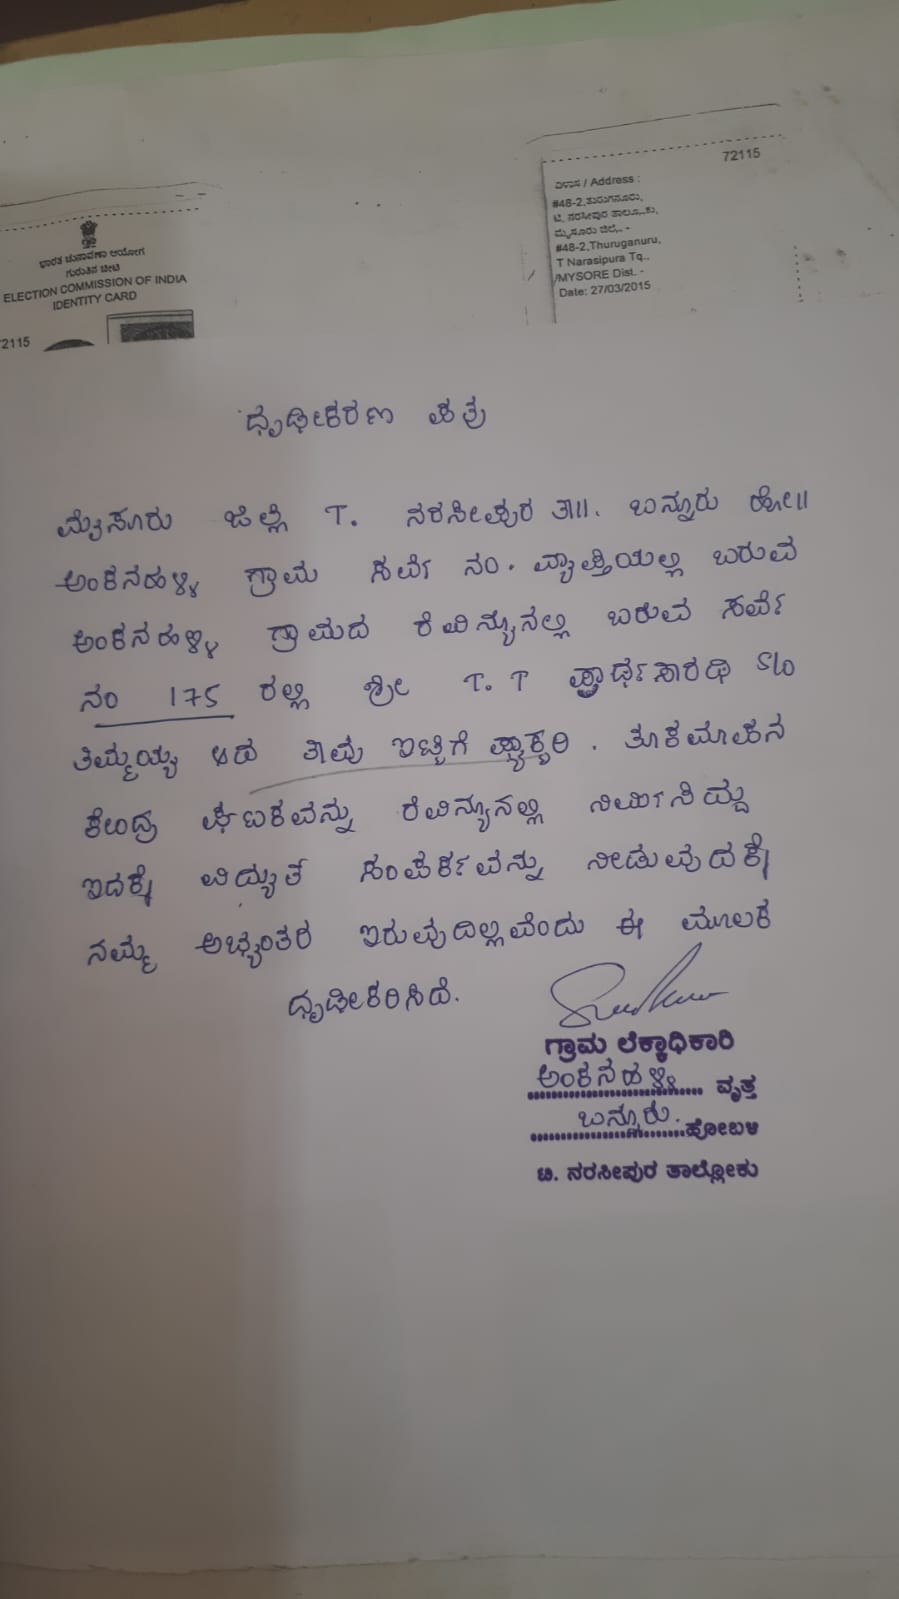 ಭಾರತ ಚುನಾವಣಾ ಆಯೋಗ
ಗುರುತಿನ ಚೀಟಿ
ELECTION COMMISSION OF INDIA
IDENTITY CARD
72115
72115
ವಿಳಾಸ / Address :
#48-2,ತುರುಗನೂರು,
ಟಿ. ನರಸೀಪುರ ತಾಲೂ,.ಕು,
ಮೈಸೂರು ಜಿಲ್ಲೆ,. -
#48-2,Thuruganuru,
T Narasipura Tq.,
/MYSORE Dist. -
Date: 27/03/2015
ಧೃಢೀಕರಣ ಪತ್ರ
ಮೈಸೂರು ಜಿಲ್ಲೆ T. ನರಸೀಪುರ ತಾ||. ಬನ್ನೂರು ಹೋ||
ಅಂಕನಹಳ್ಳಿ ಗ್ರಾಮ ಸರ್ವೆ ನಂ. ವ್ಯಾಪ್ತಿಯಲ್ಲಿ ಬರುವ
ಅಂಕನಹಳ್ಳಿ ಗ್ರಾಮದ ರೆವಿನ್ಯೂನಲ್ಲಿ ಬರುವ ಸರ್ವೆ
ನಂ 175 ರಲ್ಲಿ ಶ್ರೀ T. T ಪ್ರಾರ್ಥಸಾರಥಿ S/o
ತಿಮ್ಮಯ್ಯ ಆದ ತಾವು ಇಟ್ಟಿಗೆ ಪ್ಯಾಕ್ಟರಿ . ತೂಕಮಾಪನ
ಕೇಂದ್ರ ಘಟಕವನ್ನು ರೆವಿನ್ಯೂನಲ್ಲಿ ನಿರ್ಮಿಸಿದ್ದು
ಇದಕ್ಕೆ ವಿದ್ಯುತ್ ಸಂಪರ್ಕವನ್ನು ನೀಡುವುದಕ್ಕೆ
ನಮ್ಮ ಅಭ್ಯಂತರ ಇರುವುದಿಲ್ಲವೆಂದು ಈ ಮೂಲಕ
ಧೃಢೀಕರಿಸಿದೆ.
ಗ್ರಾಮ ಲೆಕ್ಕಾಧಿಕಾರಿ
ಅಂಕನಹಳ್ಳಿ ವೃತ್ತ
ಬನ್ನೂರು. ಹೋಬಳಿ
ಟಿ. ನರಸೀಪುರ ತಾಲ್ಲೋಕು